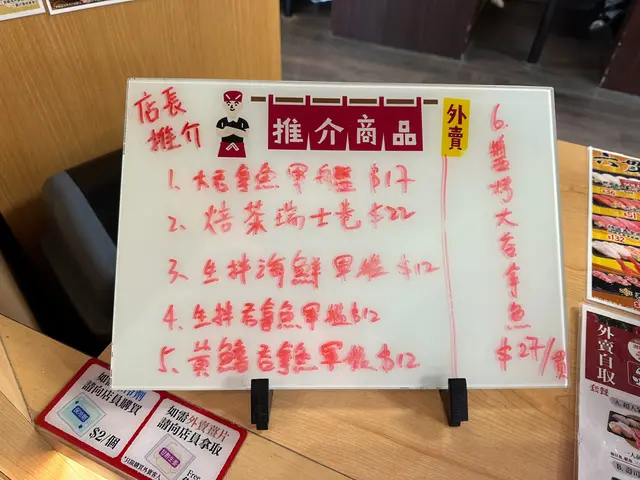 店長
推介
推介商品
外賣
1. 大吞拿魚軍艦 $17
2. 焙茶瑞士卷 $22
3. 生拌海鮮軍艦 $12
4. 生拌吞拿魚軍艦 $12
5. 黃鰭吞拿魚軍艦 $12
6. 鹽烤大吞拿魚
$27/貫
請向店員購買
$2/個
如需外賣薑片
請向店員拿取
Free
外賣自取
$132